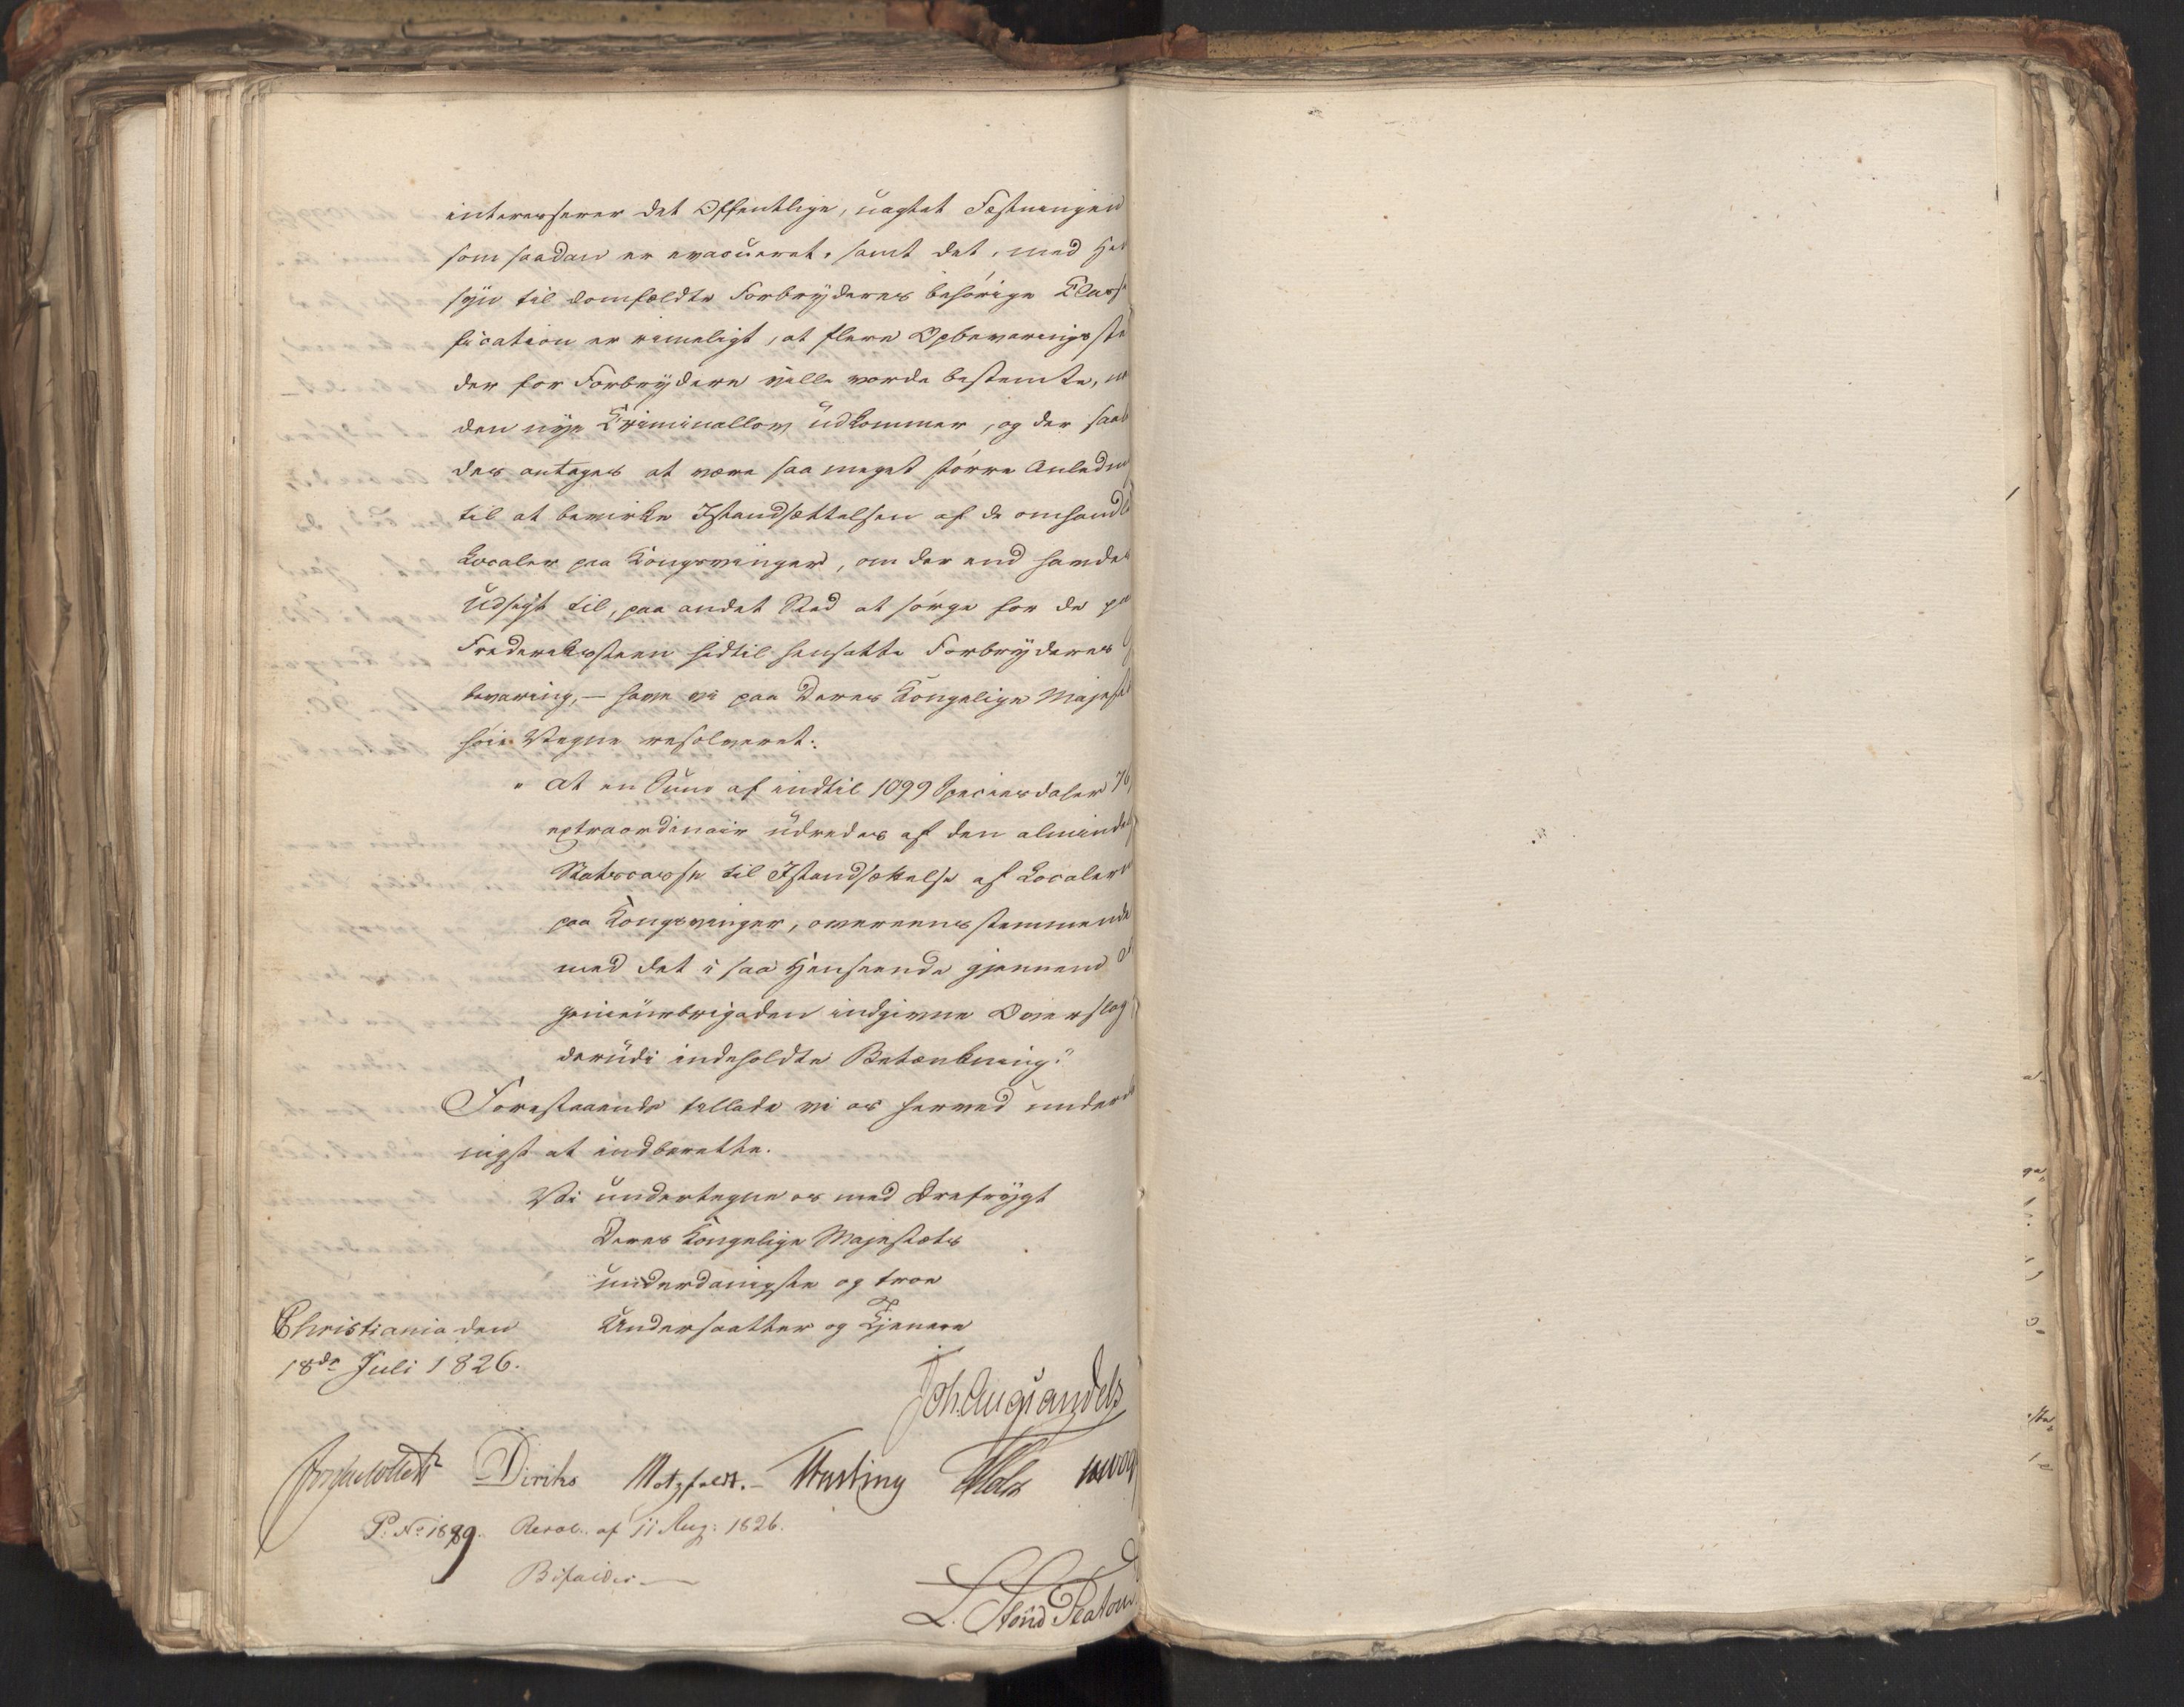 interesserer det Offentlige, uagtet Fæstningen
som saadan er evacueret, samt det, med Hen
syn til domfældte Forbryderes behørige Classi
fication er rimeligt, at flere Opbevaringsste
der for Forbrydere ville vorde bestemte, 
den nye Criminallov udkommer, og der saale
des antages at være saa meget større Anledn
til at bevirke Istandsættelsen af de omhandle
Localer paa Kongsvinger, om der end havdes
Udsigt til, paa andet Sted at sørge for de pa
Frederiksteen hidtil hensatte Forbryderes
bevaring, — have vi paa Deres Kongelige Majest
høie Vegne resolveret:
" at en Sum af indtil 1099 Speciesdaler 76
extraordinair udredes af den almindel
Statscasse til Istandsættelse af Localer
paa Kongsvinger, overeensstemmende
med det i saa Henseende gjennem
genieurbrigaden indgivne Overslag
derudi indeholdte Betænkning."
Forestaaende tillade vi os herved underd
nigst at indberette.
Vi undertegne os med Ærefrygt
Deres Kongelige Majestæts
underdanigste og troe
Christiania den Undersaatter og Tjenere
18de Juli 1826.
Joh. Aug. Sandels
Jonas Collett Diriks Motzfeldt. Fasting Holst
P. No 1889. Resol. af 11 Aug: 1826.
Bifaldes
L. Stoud Platou